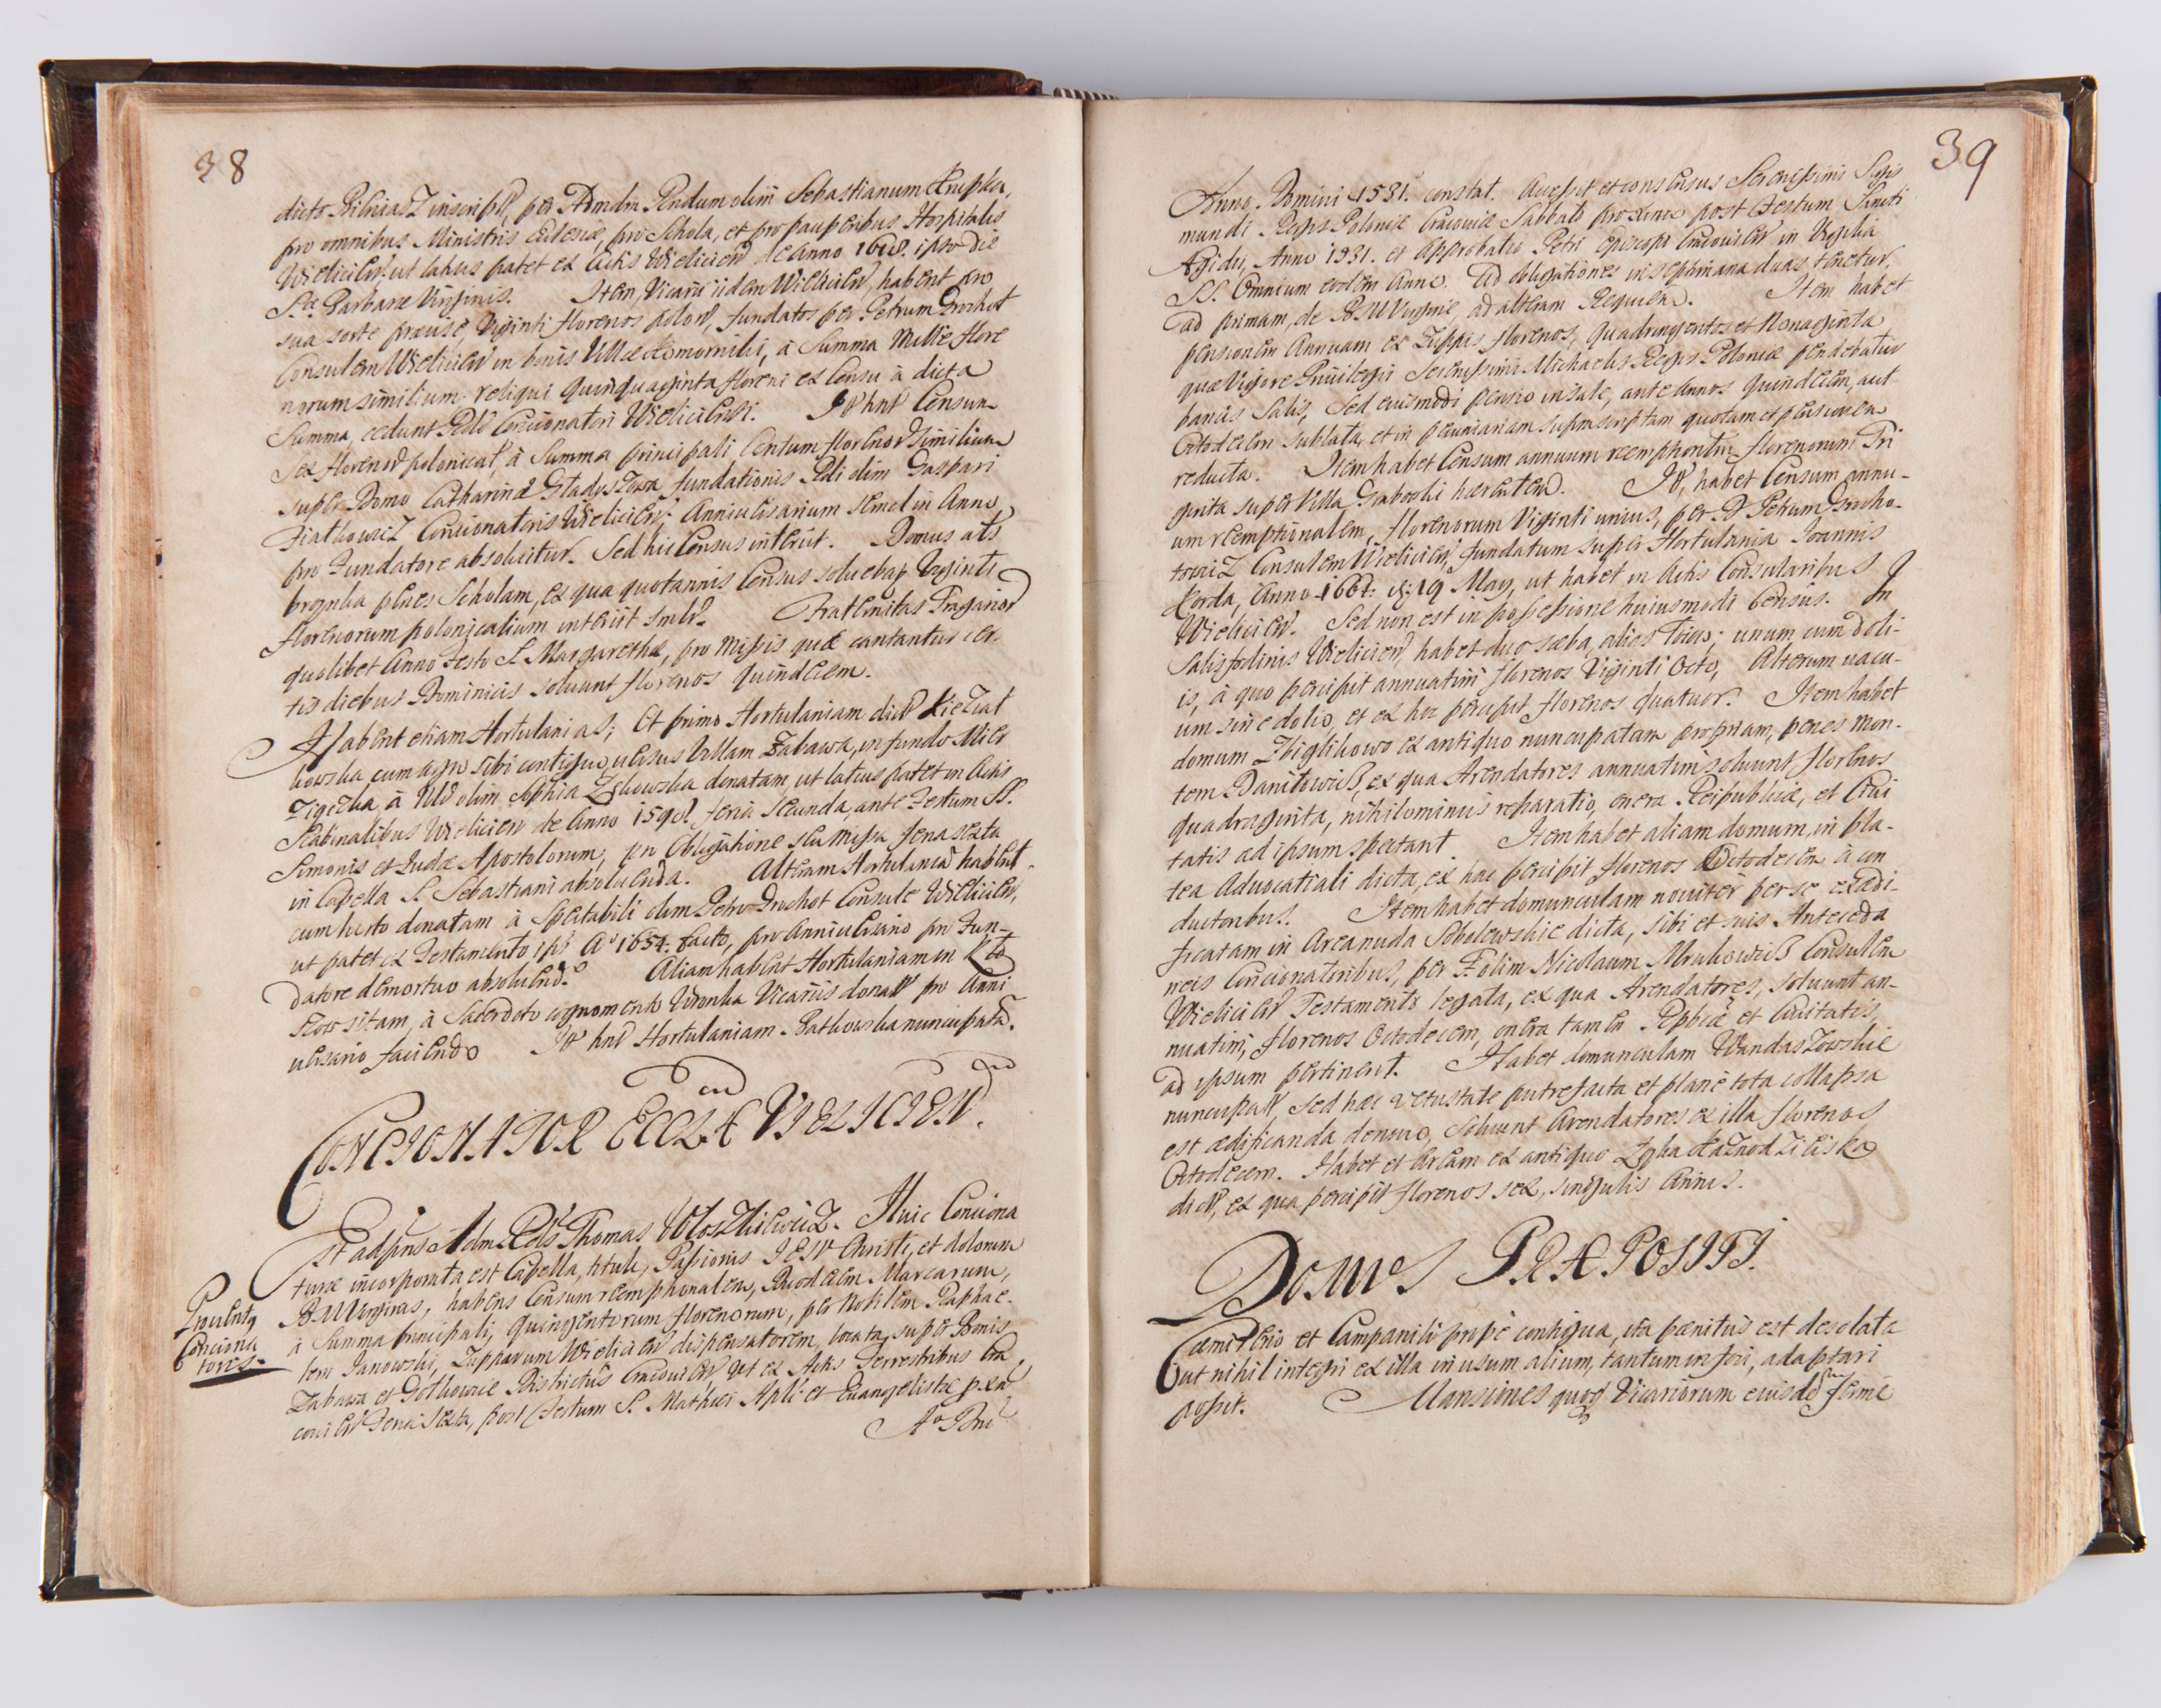 38
dicto Pilniasz inscript, per Admdm Rndum olim Sebastianum Krupka,
pro omnibus Ministris Eclesiæ, pro Schola, et pro pauperibus Hospitalis
Wieliciens, ut latius patet ex Actis Wielicien de Anno 1618. ipso die
S.tæ Barbaræ Virginis. Item, Vicarii iidem Wielicien, habent pro
sua sorte præcise, Viginti florenos polon, fundatos per Petrum Grochot
Consulem Wielicien in bonis Villæ Komorniki, à Summa Mille flore
norum similium. reliqui quinquaginta floreni ex Censu à dicta
Summa, cedunt Rdo Concionatori Wieliciensi. It hnt Censum
sex florenor polonicat, à Summa principali Centum florenor similium
super Domo Catharinæ Gladyszowa fundationis Rdi olim Gaspari
Fiathowicz Concionatoris Wielicien, Anniuersarium semel in Anno,
pro Fundatore absoluitur. Sed hic Census interiit. Domus als
penes Scholam, ex qua quotannis Census soluebap Viginti
florenorum polonicalium interiit smlr. Fraternitas Tragarior
quolibet Anno Festo S. Margarethæ, pro Missis quæ cantantur cer-
tis diebus Dominicis soluunt florenos quindecim.
Habent etiam Hortulanias; Et primo Hortulaniam dict
cum agro sibi contiguo, uersus Villam Zabawa, in fundo
à olim Sophia donatam, ut latius patet in Actis
Scabinalibus Wielicien de Anno feria Secunda, ante Festum SS.
Simonis et Judæ Apostolorum, pro Obligatione seu Missa feria sexta
in Capella S. Sebastiani absoluenda. Alteram Hortulaniā habent
cum horto donatam à Spectabili olim Petro Grochot Consule Wielicien,
ut patet ex Testamento ipś Ao 1654. facto, pro Anniuersario pro Fun-
datore demortuo absoluend. Aliam habent Hortulaniam in
sitam, à Sacerdote cognomento Wronka Vicariis donat pro Anni
uersario faciendo It hnt Hortulaniam Bathowska nuncupatā.
CONCIONATOR ECCLÆ WIELICIEN.
Est adpns Adm Rds Thomas Huic Conciona
turæ incorporata est Capella, tituli, Passionis JESU Christi, et dolorum
B. M Virginis, habens Censum reemptionalem, Quindecim Marcarum,
à Summa principali, quingentorum florenorum, per Nobilem Raphae-
lem Janowski, Zupparum Wielicien dispensatorem, locata, super Bonis
Zabawa et Districtus Cracouien, ut ex Actis Terrestribus Cra
couien Feria Sexta, post Festum S. Mathæi Apli et Euangelistæ pxa
Ao Dni
Prouentq
Conciona
toris
39
Anno. Domini 1531. constat. Accessit et consensus Serenissimi Sigis
mundi Regis Poloniæ Cracouiæ Sabbato proxima post Festum Sancti
Ægidij Anno 1531. et Approbatio Petri Episcopi Cracouien in Vigilia
SS. Omnium eodem Anno. Ad obligationes in septimana duas tenetur,
ad primam, de B. M Virgine, ad alteram Requiem. Item habet
pensionem Annuam ex Zuppis florenos, Quadringentos et Nonaginta
quæ Vigore Priuilegii Serenissimi Michaelis Regis Poloniæ pendebatur
bancis Salis, Sed eiusmodi pensio in sale, ante Annos quindecim, aut
Octodecim sublata, et in pecuniariam suprascriptam quotam et pensionem
reducta. Item habet Censum annuum reemptionlm florenorum Tri
ginta super Villa Grabowki hærentem. It, habet Censum annu-
um reemptionalem, florenorum Viginti unius, per D Petrum Grocho-
towicz Consulem Wielicien, fundatum super Hortulania Joannis
Korda, Anno 1661. d. 19 Maij, ut habet in Actis Consularibus
Wielicien. Sed non est in possessione huiusmodi Census. In
Salisfodinis Wielicien, habet duo sæba, alias Łoiu; unum cum doli-
is, à quo percipit annuatim florenos Viginti Octo, Alterum uacu-
um sine dolio, et ex hoc percipit florenos quatuor. Item habet
domum ex antiquo nuncupatam propriam, penes mon-
tem ex qua Arendatores annuatim soluunt florenos
quadraginta, nihilominus reparatio, onera Reipublicæ, et Ciui
tatis ad ipsum spectant Item habet aliam domum, in pla-
tea Aduocatiali dicta, ex hac percipit florenos Octodecem à con
ductoribus. Item habet domunculam nouiter per se exædi-
ficatam in Area nuda Sobolewskie dicta, sibi et suis Antecæda
neis Concionatoribus, per F olim Nicolaum Consulem
Wielicien Testamento legata, ex qua Arendatores, soluunt an-
nuatim, florenos Octodecem, onera tamen Rpbcæ et Ciuitatis,
ad ipsum pertinent. Habet domunculam Wandaszowskie
nuncupatt, sed hæc uetustate putrefacta et plane tota collapsa
est ædificanda denuo, soluunt Arendatores ex illa florenos
Octodecem. Habet et Aream ex antiquo Kaznodzieiska
dict, ex qua percipit florenos sex, singulis Annis.
DOMUS PRÆPOSITI.
Cæmiterio et Campanili prope contigua, ita pænitus est desolata
ut nihil integri ex illa in usum alium, tantum in foci, adaptari
possit. Mansiones quoq Vicariorum eiusdē ferme